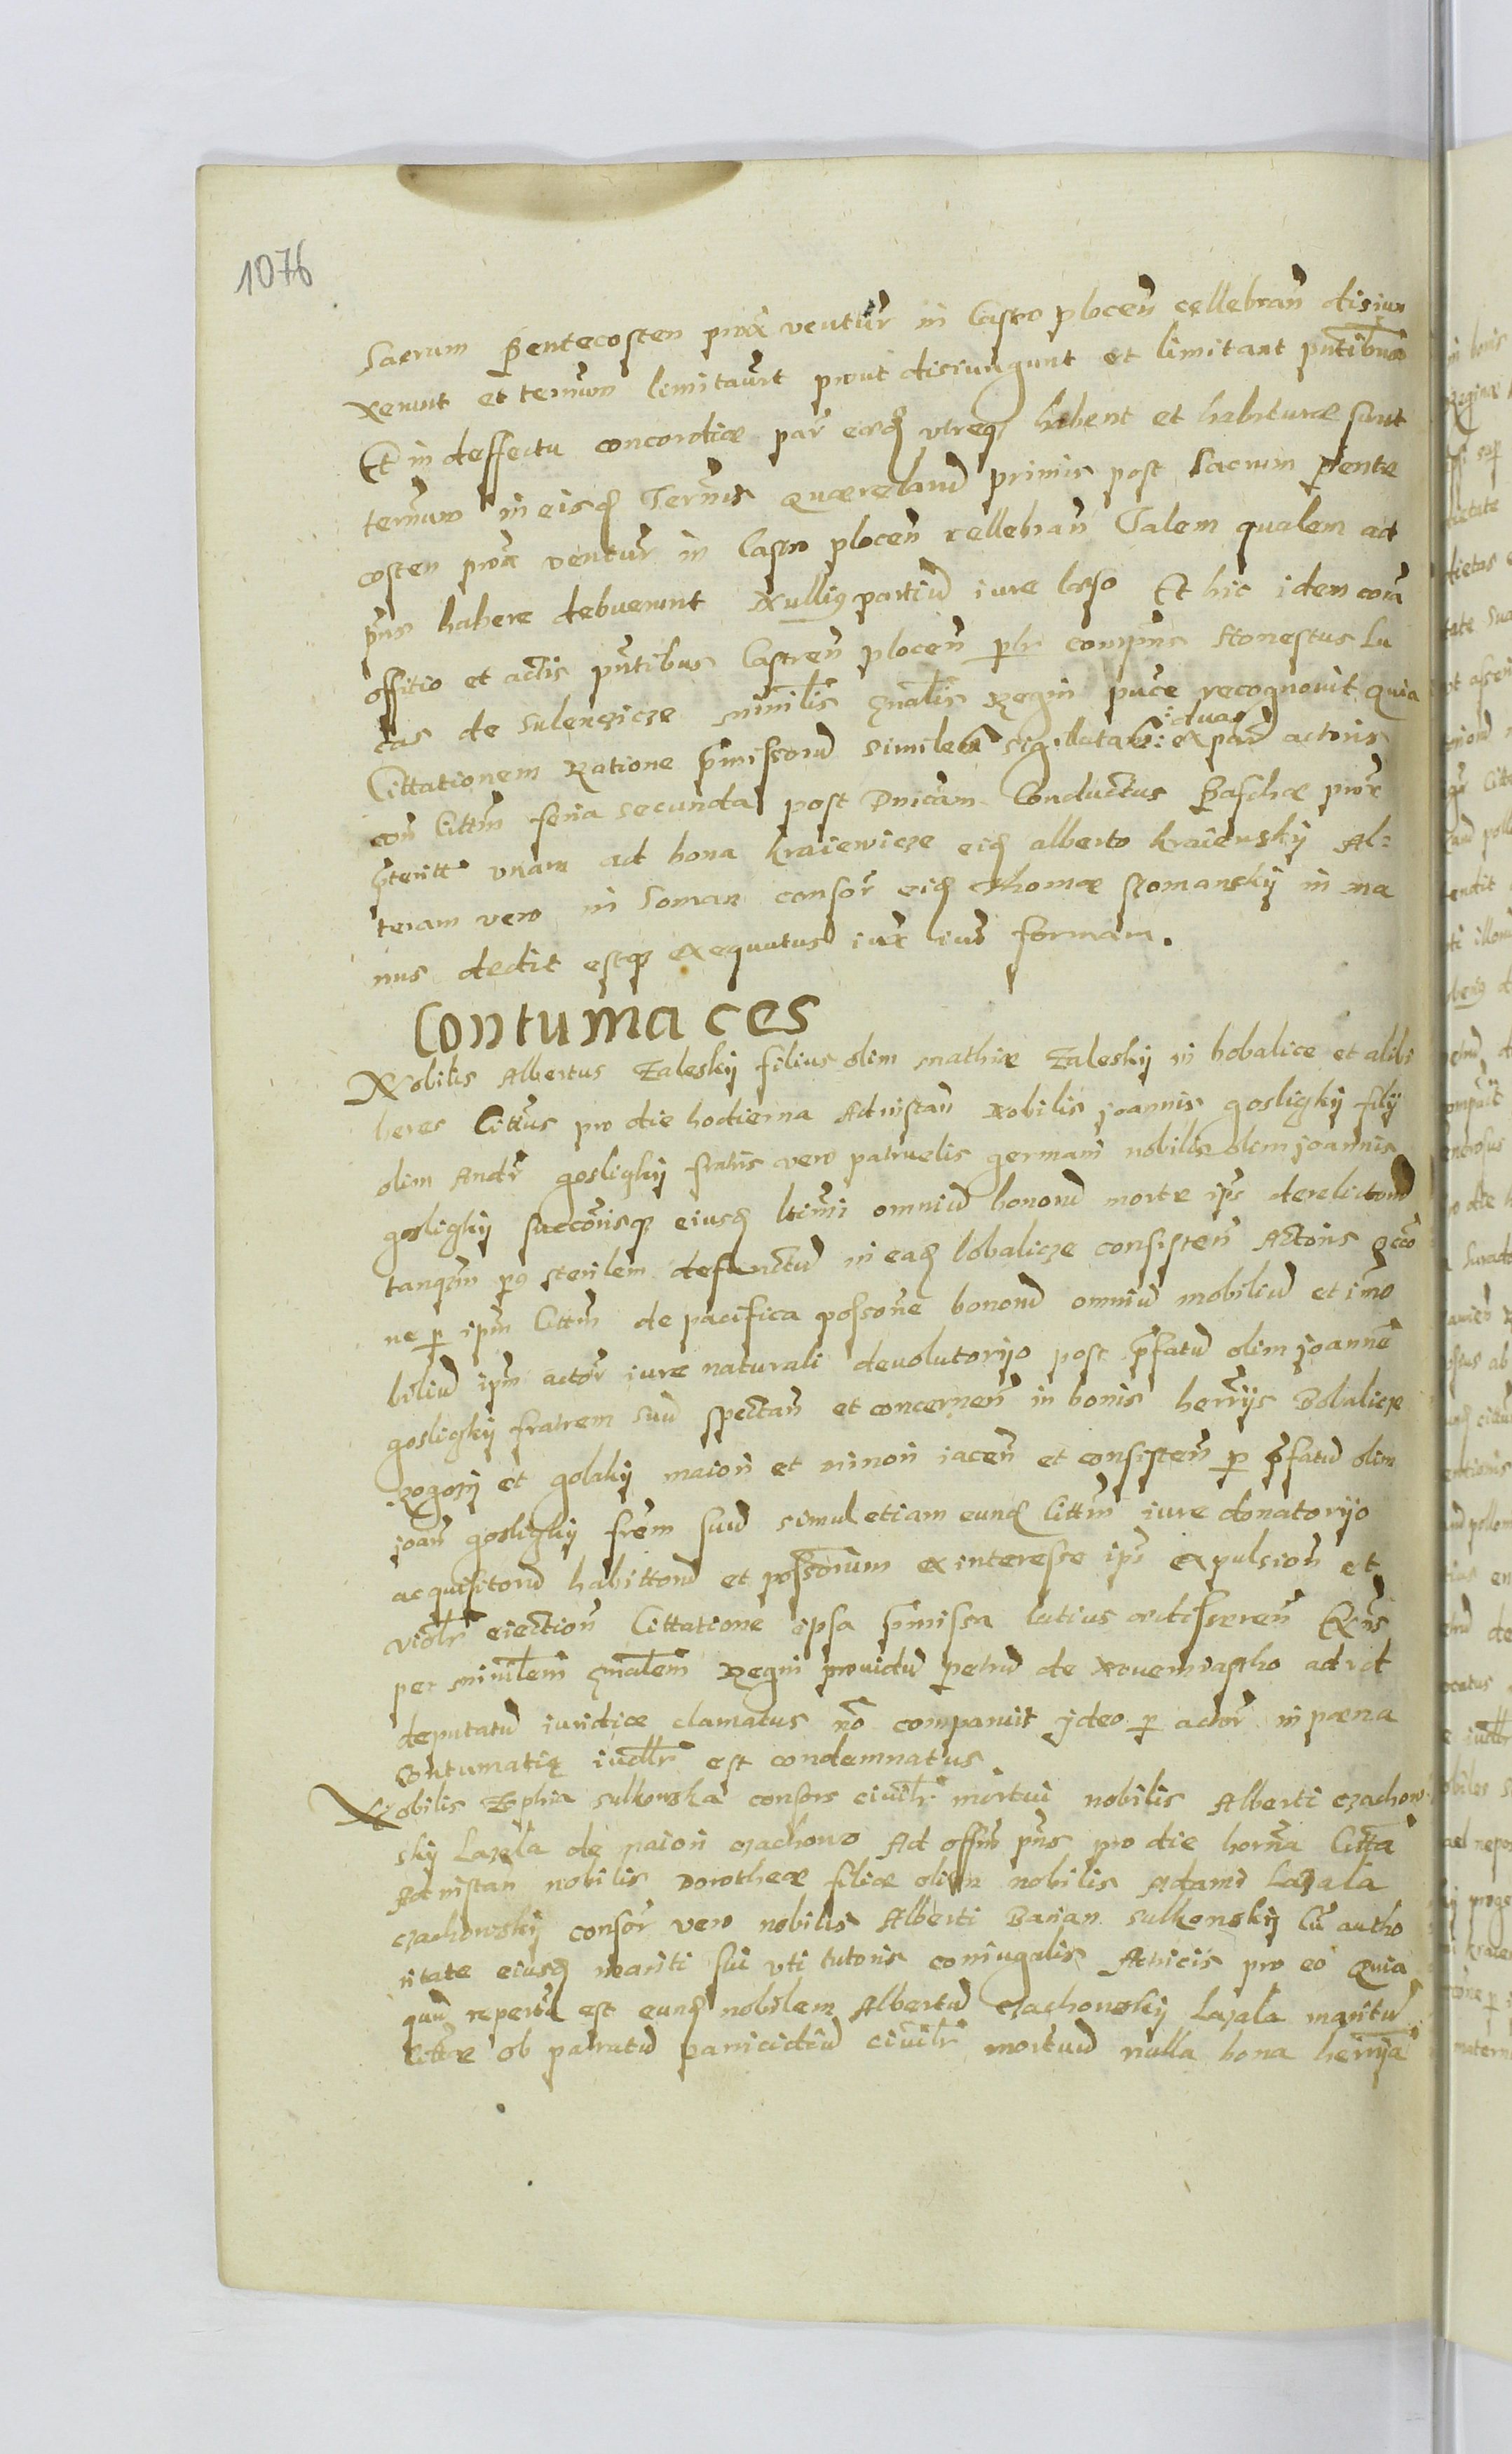 1076
Sacrum Pentecosten prox ventur in Castro plocen cellebran disiun
xerunt et termum limitavrt prout disiungunt et limitant pntibus
Et in deffectu concordiæ par eædq vtreq habent et habituræ sunt
termum in eisdq Termis quærelarud primis post Sacrum Pente
costen prox ventur in Castro plocen cellebran Talem qualem ad
pns habere debuerunt Nullig partiud iure læso Et hic idem cora
offitio et actis pntibus Castren plocen plr compns Honestus Lu
cas de Sulencicze minilis gnalis Regni puce recognouit quia
iduas
Cittationem Ratione pmissord similem sigillatam: ex par actoris
con Cittm feria secunda post Dnicam Conductus Paschæ prox
pteritt vnam ad bona kraiewicze eidq alberto kraiewskij Al:
teram vero in Soman consor eidq Thomæ Somanskij in ma
nus dedit estq exequutus iux ius formam.
Contumaces
Nobilis Albertus Zaleskij filius olim Mathiæ Zaleskij in bobalice et alibi
heres Cittus pro die hodierna Ad instan Nobilis joannis gosligkij filij
olim Andr gosligkij fratris vero patruelis germani nobilis olim joannis
gosligkij succoriisq eiusdq ltimi omniud bonord morte ips derelictord
tanqm pq sterilem defunctud in eadq bobalicze consisten Actoris occo
ne p ipm Cittm de pacifica possone bonord omniud mobiliud et imo
biliud ipm actor iure naturali deuolutorijo post pfatud olim joanne
gosligkij fratrem suud spectan et concernen in bonis herrijs Bobalicze
Rogozij et golakij maiori et minori iacen et consisten p pfatud olim
joan gosligkij frem suud simul etiam eundq Cittm iure donatorijo
acquisitord habittord et possorum ex interesse ips expulsion et
violr eiection Cittatione ipsa pmissa latius ac disseren Qns
per minilem gnalem Regni prouidud petrud de Nouemiastho ad id
deputatud iuridice clamatus no comparuit jdeo p actor in pæna
Contumatię iudlr est condemnatus
Nobilis Zophia sulkowska consors ciuilr mortui nobilis Alberti czachow
skij Lazela de maiori czachowo Ad offm pns pro die horna Citta
Ad instan nobilis Dorotheæ filiæ olim nobilis Adami Lazala
czachowskij consor vero nobilis Alberti Barian sulkowskij Cu autho
ritate eiusdq mariti sui vti tutoris coniugalis Actricis pro eo Quia
quud repertud est eundq nobilem Albertud czachowskij Lazala maritud
Cittæ ob patratud parricidiud ciuilr mortuud nulla bona herrija